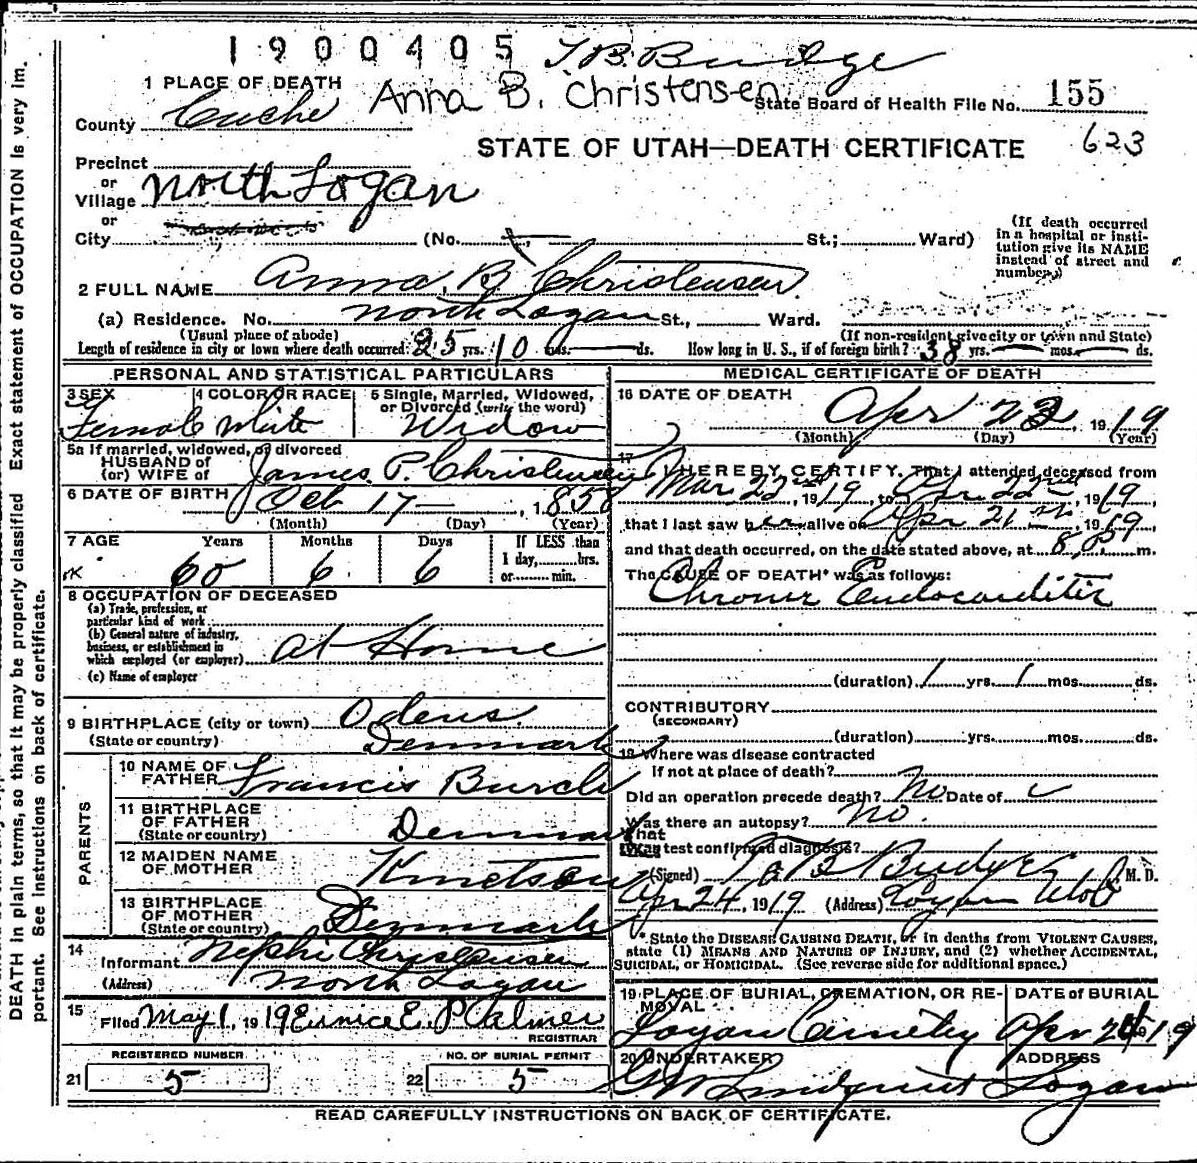 1900405 T.B. Budge
1 PLACE OF DEATH Anna B. Christensen State Board of Health File No. 155
County Cache
STATE OF UTAH—DEATH CERTIFICATE 623
Precinct
or
Village North Logan
or
City (No. St.; Ward)
(If death occurred
in a hospital or insti-
tution give its NAME
instead of street and
number.)
2 FULL NAME Anna B Christensen
(a) Residence. No. North Logan St., Ward.
(Usual place of abode) (If non-resident give city or town and State)
Length of residence in city or town where death occurred 25 yrs. 10 mos. ds. How long in U. S., if of foreign birth? 38 yrs. mos. ds.
PERSONAL AND STATISTICAL PARTICULARS
3 SEX 4 COLOR OR RACE 5 Single, Married, Widowed,
or Divorced (write the word)
Female White Widow
5a If married, widowed, or divorced
HUSBAND of
(or) WIFE of James P. Christensen
6 DATE OF BIRTH Oct 17 , 1858
(Month) (Day) (Year)
7 AGE Years Months Days If LESS than
1 day, hrs.
or min.
OK 60 6 6
8 OCCUPATION OF DECEASED
(a) Trade, profession, or
particular kind of work
(b) General nature of industry,
business, or establishment in
which employed (or employer) At Home
(c) Name of employer
9 BIRTHPLACE (city or town) Odens
(State or country) Denmark
PARENTS
10 NAME OF
FATHER Francis Burch
11 BIRTHPLACE
OF FATHER
(State or country) Denmark
12 MAIDEN NAME
OF MOTHER Knetson
13 BIRTHPLACE
OF MOTHER
(State or country) Denmark
14
Informant Nephi Christensen
(Address) North Logan
15
Filed May 1, 1919 Eunice E. Palmer
REGISTRAR
REGISTERED NUMBER NO. OF BURIAL PERMIT
21 5 22 5
MEDICAL CERTIFICATE OF DEATH
16 DATE OF DEATH
Apr 23, 1919
(Month) (Day) (Year)
17
I HEREBY CERTIFY, That I attended deceased from
Mar 22nd, 1919, to Apr 22nd, 1919
that I last saw her alive on Apr 21st, 1919
and that death occurred, on the date stated above, at m.
The CAUSE OF DEATH* was as follows:
Chronic Endocarditis
(duration) 1 yrs. 1 mos. ds.
CONTRIBUTORY
(SECONDARY)
(duration) yrs. mos. ds.
18 Where was disease contracted
if not at place of death?
Did an operation precede death? No Date of
Was there an autopsy? No.
What test confirmed diagnosis?
(Signed) T B Budge M. D.
Apr 24, 1919 (Address) Logan Utah
*State the DISEASE CAUSING DEATH, or in deaths from VIOLENT CAUSES,
state (1) MEANS AND NATURE OF INJURY, and (2) whether ACCIDENTAL,
SUICIDAL, or HOMICIDAL. (See reverse side for additional space.)
19 PLACE OF BURIAL, CREMATION, OR RE-
MOVAL DATE of BURIAL
Logan Cemetery Apr 19
20 UNDERTAKER ADDRESS
G W Lindquist Logan
READ CAREFULLY INSTRUCTIONS ON BACK OF CERTIFICATE.
DEATH in plain terms, so that it may be properly classified. Exact statement of OCCUPATION is very im.
portant. See instructions on back of certificate.